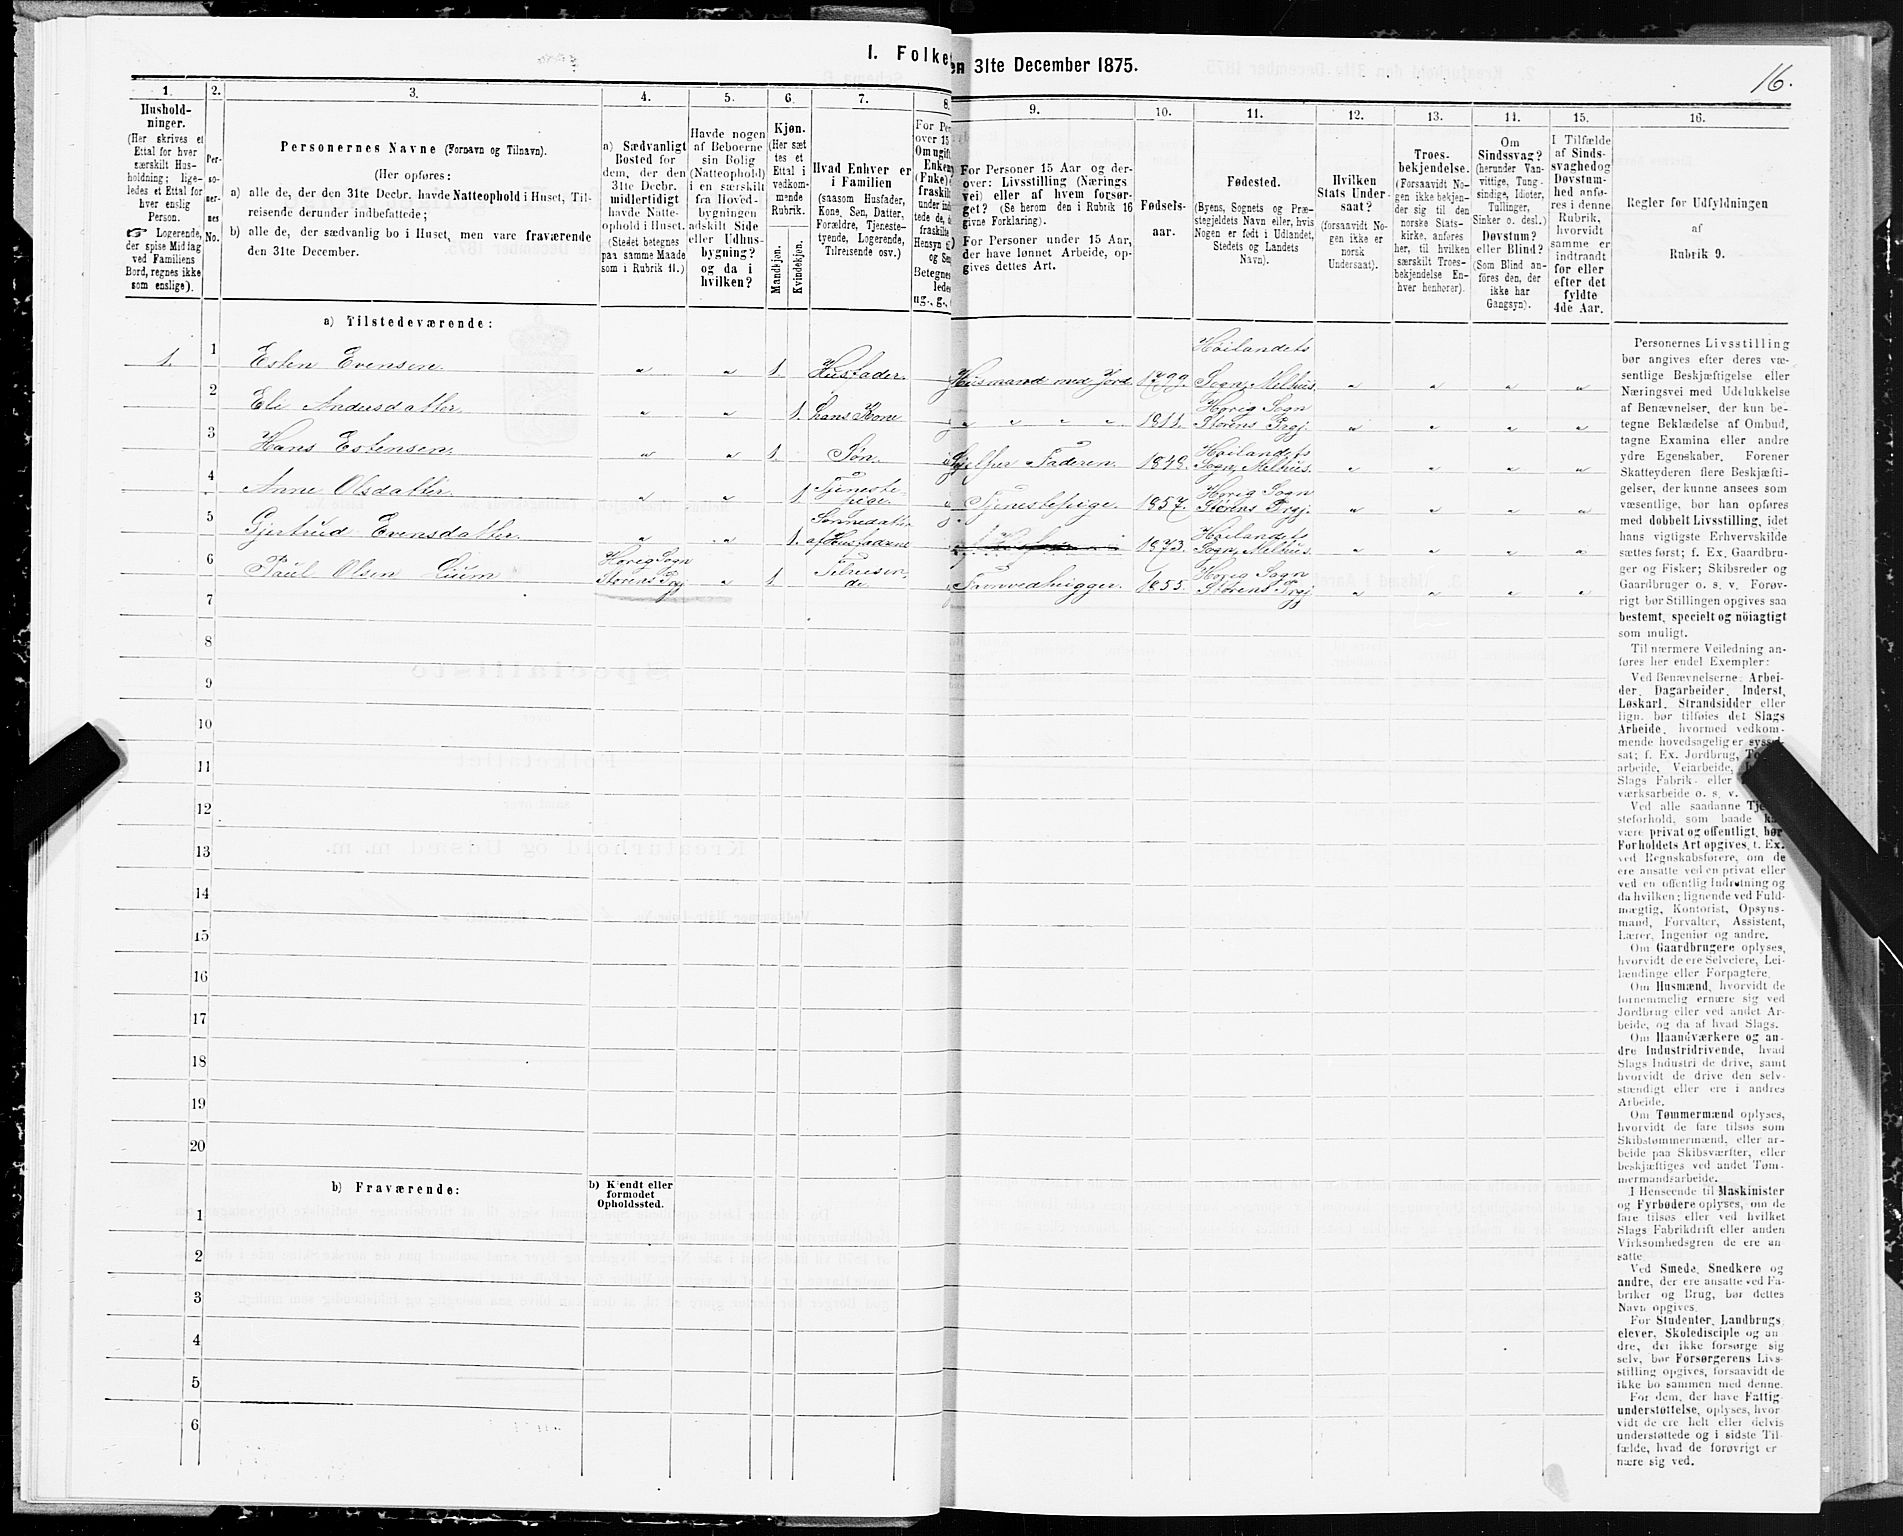 I. Folke
en 31te December 1875.
16.
1.
Hushold-
ninger.
(Her skrives et
Ettal for hver
særskilt Hus-
holdning; lige-
ledes et Ettal for
hver enslig
Person.
☞ Logerende,
der spise Middag
ved Familiens
Bord, regnes ikke
som enslige).
2.
Per-
so-
ner-
nes
No.
3.
Personernes Navne (Fornavn og Tilnavn).
(Her opføres:
a) alle de, der den 31te Decbr. havde Natteophold i Huset, Til-
reisende derunder indbefattede;
b) alle de, der sædvanlig bo i Huset, men vare fraværende
den 31te December.
4.
a) Sædvanligt
Bosted for
dem, der den
31te Decbr.
midlertidigt
havde Natte-
ophold i Huset.
(Stedet betegnes
paa samme Maade
som i Rubrik 11.)
5.
Havde nogen
af Beboerne
sin Bolig
(Natteophold)
i en særskilt
fra Hoved-
bygningen
adskilt Side
eller Udhus-
bygning?
og da i
hvilken?
6.
Kjøn.
(Her sæt
tes et
Ettal i
vedkom-
mende
Rubrik.
Mandkjøn.
Kvindekjøn.
7.
Hvad Enhver er
i Familien
(saasom Husfader,
Kone, Søn, Datter,
Forældre, Tjeneste-
tyende, Logerende,
Tilreisende osv.)
8.
For Per
over 15
Om ugift
Enkem
(Enke)
fraskilt
under ind
tede de,
fraskilte
Hensyn til
og Se
Betegnes
ledes
ug., g.,
9.
For Personer 15 Aar og der-
over: Livsstilling (Nærings
vei) eller af hvem forsør-
get? (Se herom den i Rubrik 16
givne Forklaring).
For Personer under 15 Aar,
der have lønnet Arbeide, op-
gives dettes Art.
10.
Fødsels-
aar.
11.
Fødested.
(Byens, Sognets og Præ-
stegjeldets Navn eller, hvis
Nogen er født i Udlandet,
Stedets og Landets
Navn).
12.
Hvilken
Stats Under-
saat?
(forsaavidt No-
gen ikke er
norsk
Undersaat).
13.
Troes-
bekjendelse.
(Forsaavidt No-
gen ikke bekjen-
der sig til den
norske Stats-
kirke, anføres
her, til hvilken
særskilt Troes-
bekjendelse En-
hver henhører).
14.
Om
Sindssvag?
(herunder Van-
vittige, Tung-
sindige, Idioter,
Tullinger,
Sinker o. desl.)
Døvstum?
eller Blind?
(Som Blind an-
føres den, der
ikke har
Gangsyn).
15.
I Tilfælde
af Sinds-
svaghed og
Døvstum-
hed anfø-
res i denne
Rubrik,
hvorvidt
samme er
indtraadt
før eller
efter det
fyldte
4de Aar.
16.
Regler for Udfyldningen
af
Rubrik 9.
a) Tilstedeværende:
1. 1 Esten Evensen „ „ 1. Husfader. Husmand med Jord. 1799. Høilandets Sogn, Melhus. „ „ „ „
2 Eli Andersdatter „ „ 1. hans Kone „ „ „ „ 1811. Horig Sogn Størens Prgj. „ „ „ „
3 Hans Estensen. „ „ 1. Søn. Hjelper Faderen. 1849. Høilandets Sogn, Melhus. „ „ „ „
4 Anne Olsdatter. „ „ 1. Tjeneste-pige. Tjenestepige. 1857. Horig Sogn Størens Prgj. „ „ „ „
5 Gjertrud Evensdatter. „ „ 1. Sønnedatter af Husfaderne 1873. Høilandets Sogn, Melhus. „ „ „ „
6 Paul Olsen Lium Horig Sogn Størens Prgj „ 1. Tilreisen-de. Favnvedhugger. 1855. Horig Sogn Størens Prgj. „ „ „ „
7
8
9
10
11
12
13
14
15
16
17
18
19
20
b) Fraværende:
b) Kjendt eller
formodet
Opholdssted.
1
2
3
4
5
6
Personernes Livsstilling
bør angives efter deres væ-
sentlige Beskjæftigelse eller
Næringsvei med Udelukkelse
af Benævnelser, der kun be-
tegne Beklædelse af Ombud,
tagne Examina eller andre
ydre Egenskaber. Forener
Skatteyderen flere Beskjæfti-
gelser, der kunne ansees som
væsentlige, bør han opføres
med dobbelt Livsstilling, idet
hans vigtigste Erhvervskilde
sættes først; f. Ex. Gaardbru-
ger og Fisker; Skibsreder og
Gaardbruger o. s. v. Forøv-
rigt bør Stillingen opgives saa
bestemt, specielt og nöiagtigt
som muligt.
Til nærmere Veiledning an-
føres her endel Exempler:
Ved Benævnelserne: Arbei-
der, Dagarbeider, Inderst,
Løskarl, Strandsidder eller
lign. bør tilføies det Slags
Arbeide, hvormed vedkom-
mende hovedsagelig er syssel-
sat; f. Ex. Jordbrug,
arbeide, Veiarbeide,
Slags Fabrik- eller
værksarbeide o. s. v.
Ved alle saadanne Tje-
steforhold, som baade
være privat og offentligt, bør
Forholdets Art opgives, t. Ex.
ved Regnskabsførere, om de
ere ansatte ved en privat eller
ved en offentlig Indretning og
da hvilken; lignende ved Fuld-
mægtig, Kontorist, Opsyns-
mand, Forvalter, Assistent,
Lærer, Ingeniør og andre.
Om Gaardbrugere oplyses,
hvorvidt de ere Selveiere, Lei-
lændinge eller Forpagtere.
Om Husmænd, hvorvidt de
fornemmelig ernære sig ved
Jordbrug eller ved andet Ar-
beide, og da af hvad Slags.
Om Haandværkere og an-
dre Industridrivende, hvad
Slags Industri de drive, samt
hvorvidt de drive den selv-
stændigt eller ere i andres
Arbeide.
Om Tømmermænd oplyses,
hvorvidt de fare tilsøs som
Skibstømmermænd, eller ar-
beide paa Skibsværfter, eller
beskjæftiges ved andet Tøm-
mermandsarbeide.
I Henseende til Maskinister
og Fyrbødere oplyses, om de
fare tilsøs eller ved hvilket
Slags Fabrikdrift eller anden
Virksomhedsgren de ere an-
satte.
Ved Smede, Snedkere og
andre, der ere ansatte ved Fa-
briker og Brug, bør dettes
Navn opgives.
For Studenter, Landbrugs-
elever, Skoledisciple og an-
dre, der ikke forsørge sig
selv, bør Forsørgerens Livs-
stilling opgives, forsaavidt de
ikke bo sammen med denne.
For dem, der have Fattig-
understøttelse, oplyses, hvor-
vidt de ere helt eller delvis
understøttede og i sidste Til-
fælde, hvad de forøvrigt er-
nære sig ved.